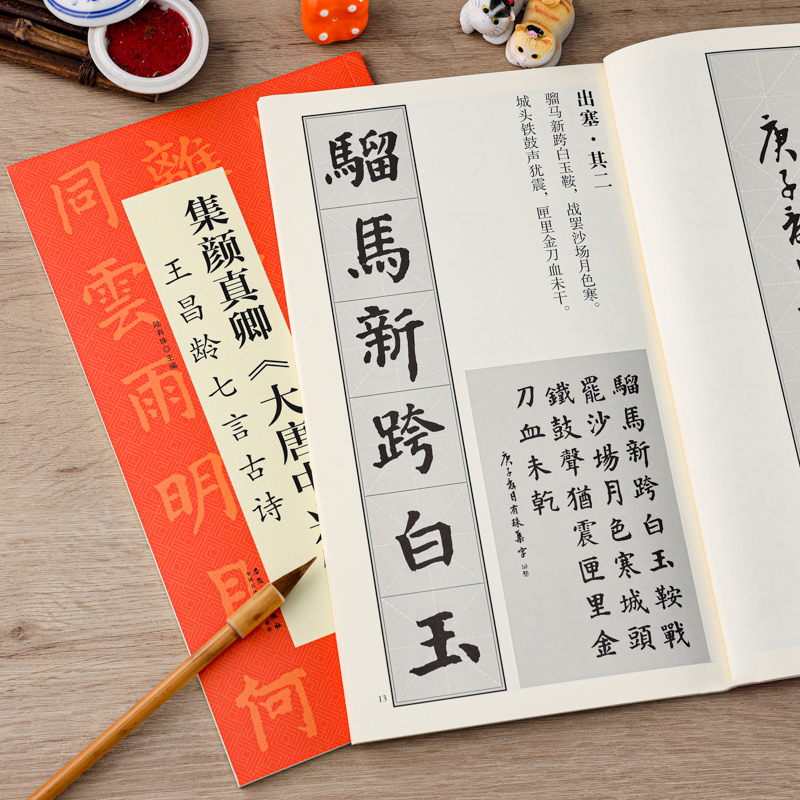 出塞·其二
骝马新跨白玉鞍，战罢沙场月色寒。
城头铁鼓声犹震，匣里金刀血未干。
騮馬新跨白玉
騮馬新跨白玉鞍戰
罷沙場月色寒城頭
鐵鼓聲猶震匣里金
刀血未乾
庚子春日有珠集字
13
庚子春
集颜真卿《大唐中
王昌龄七言古诗
陆有珠◎主编
離
同雲雨明月何